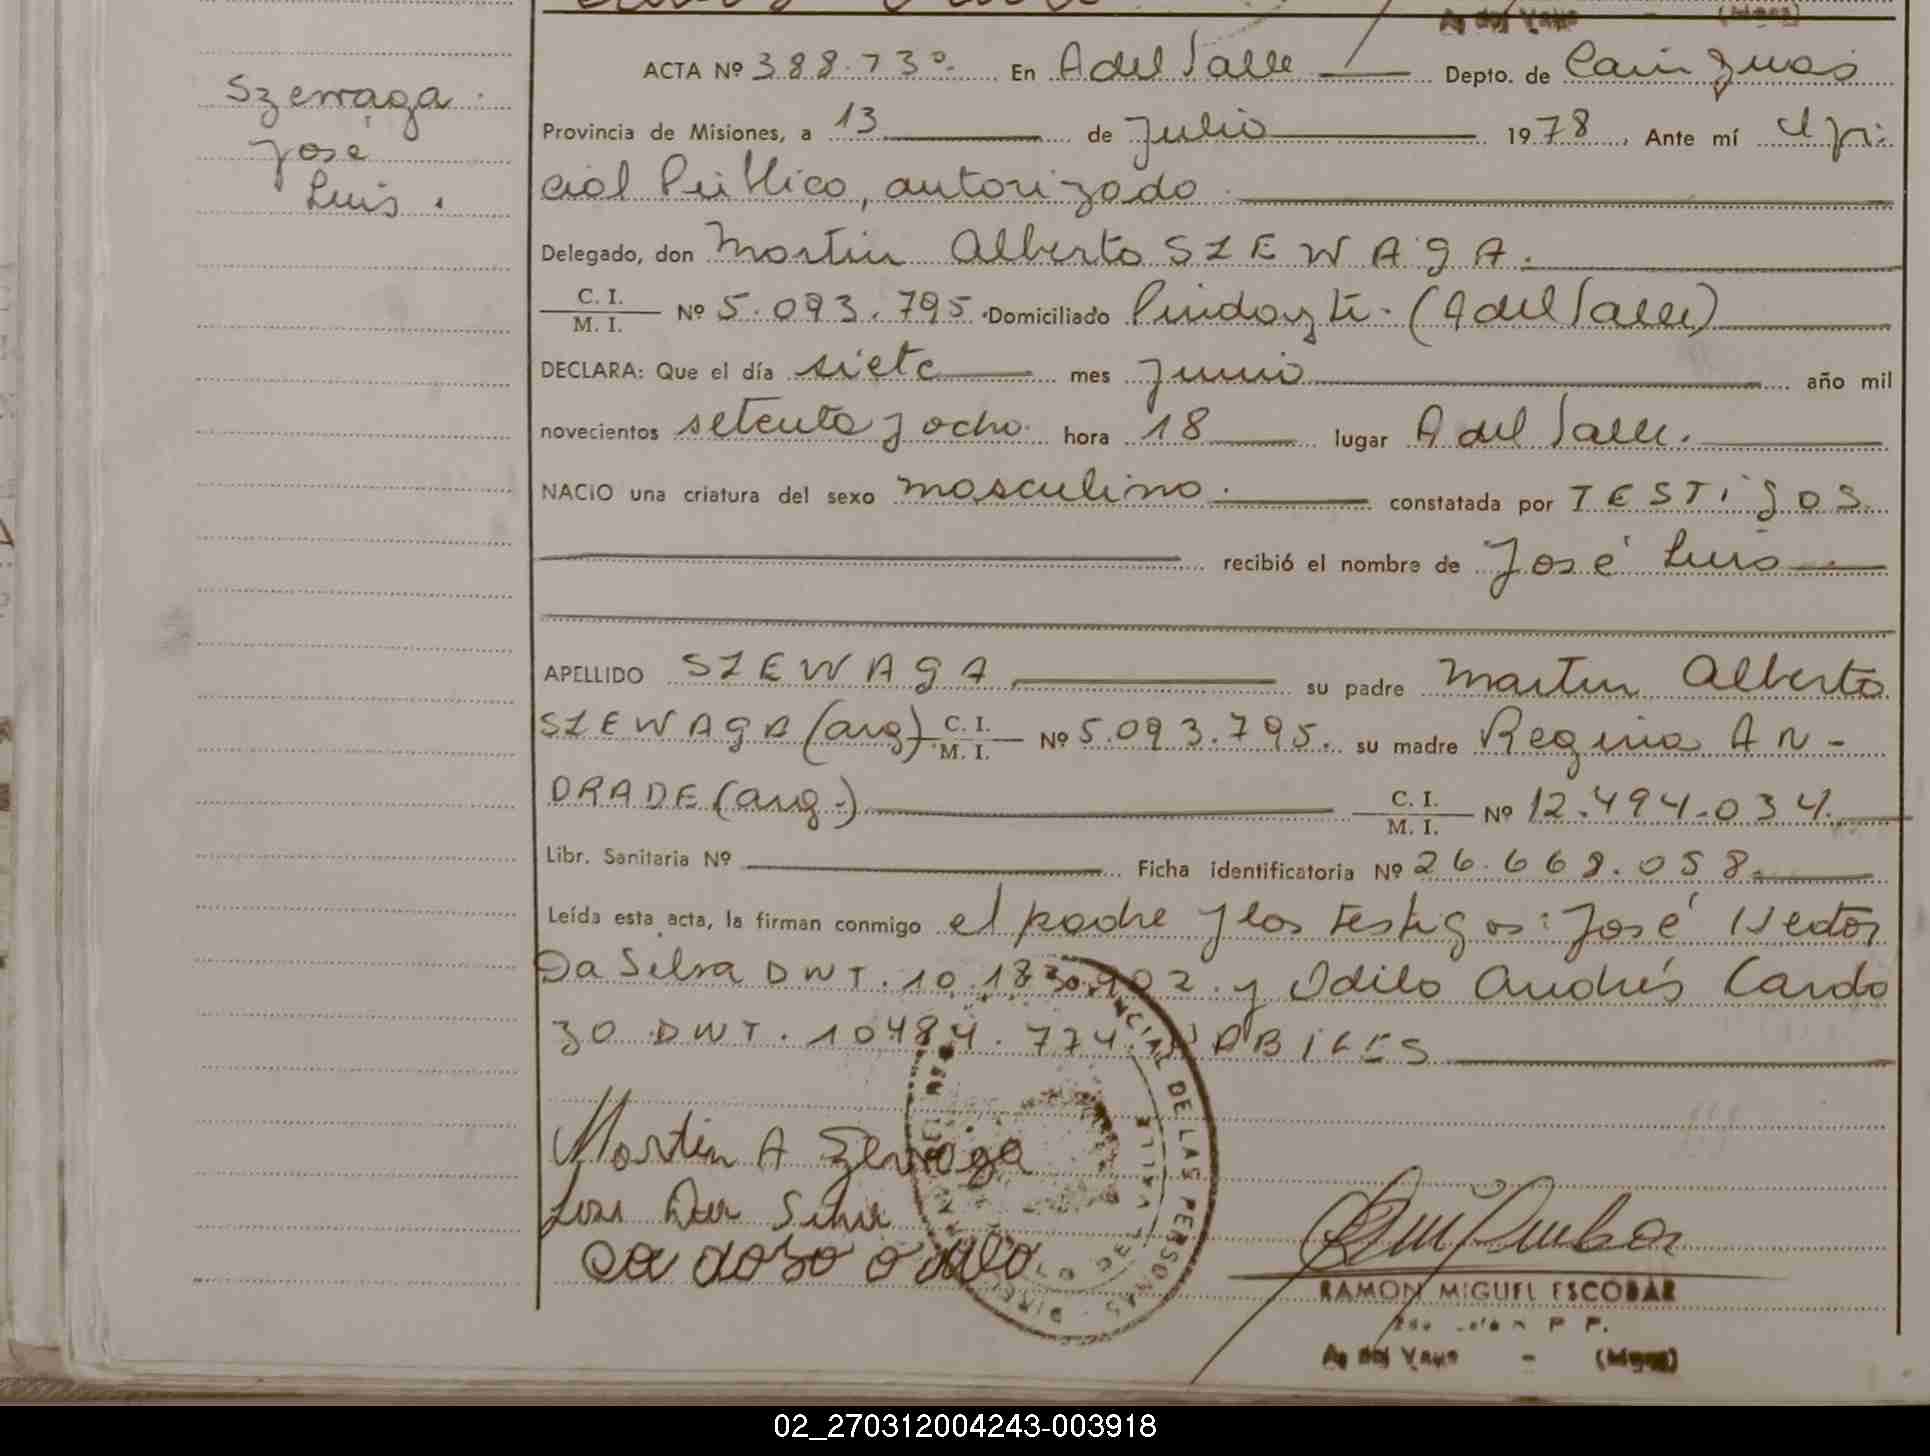 Szewaga
José
Luis.
ACTA Nº 388.73º. En A del Valle Depto. de Cainguas
Provincia de Misiones, a 13 de Julio 1978, Ante mí Ofi-
cial Público, autorizado
Delegado, don Martin Alberto SZEWAGA.
C. I. / M. I. Nº 5.093.795. Domiciliado Pindayti - (A del Valle)
DECLARA: Que el día siete mes Junio año mil
novecientos setenta y ocho. hora 18 lugar A del Valle.
NACIO una criatura del sexo masculino. constatada por TESTIGOS
recibió el nombre de José Luis
APELLIDO SZEWAGA su padre Martin Alberto
SZEWAGA (arg) C. I. / M. I. Nº 5.093.795. su madre Regina AN-
DRADE (arg.) C. I. / M. I. Nº 12.494.034.
Libr. Sanitaria Nº Ficha identificatoria Nº 26.668.058.
Leída esta acta, la firman conmigo el padre y los testigos: José Hector
Da Silva DNI. 10.183.902. y Odilo Andrés Cardo
zo DNI. 10484.774. HABILES
Martin A Szewaga
Da Silva
Ca dozo o dilo
DE LAS PERSONAS
DEL VALLE
RAMON MIGUEL ESCOBAR
Ao del Valle - (Mnes)
02_270312004243-003918